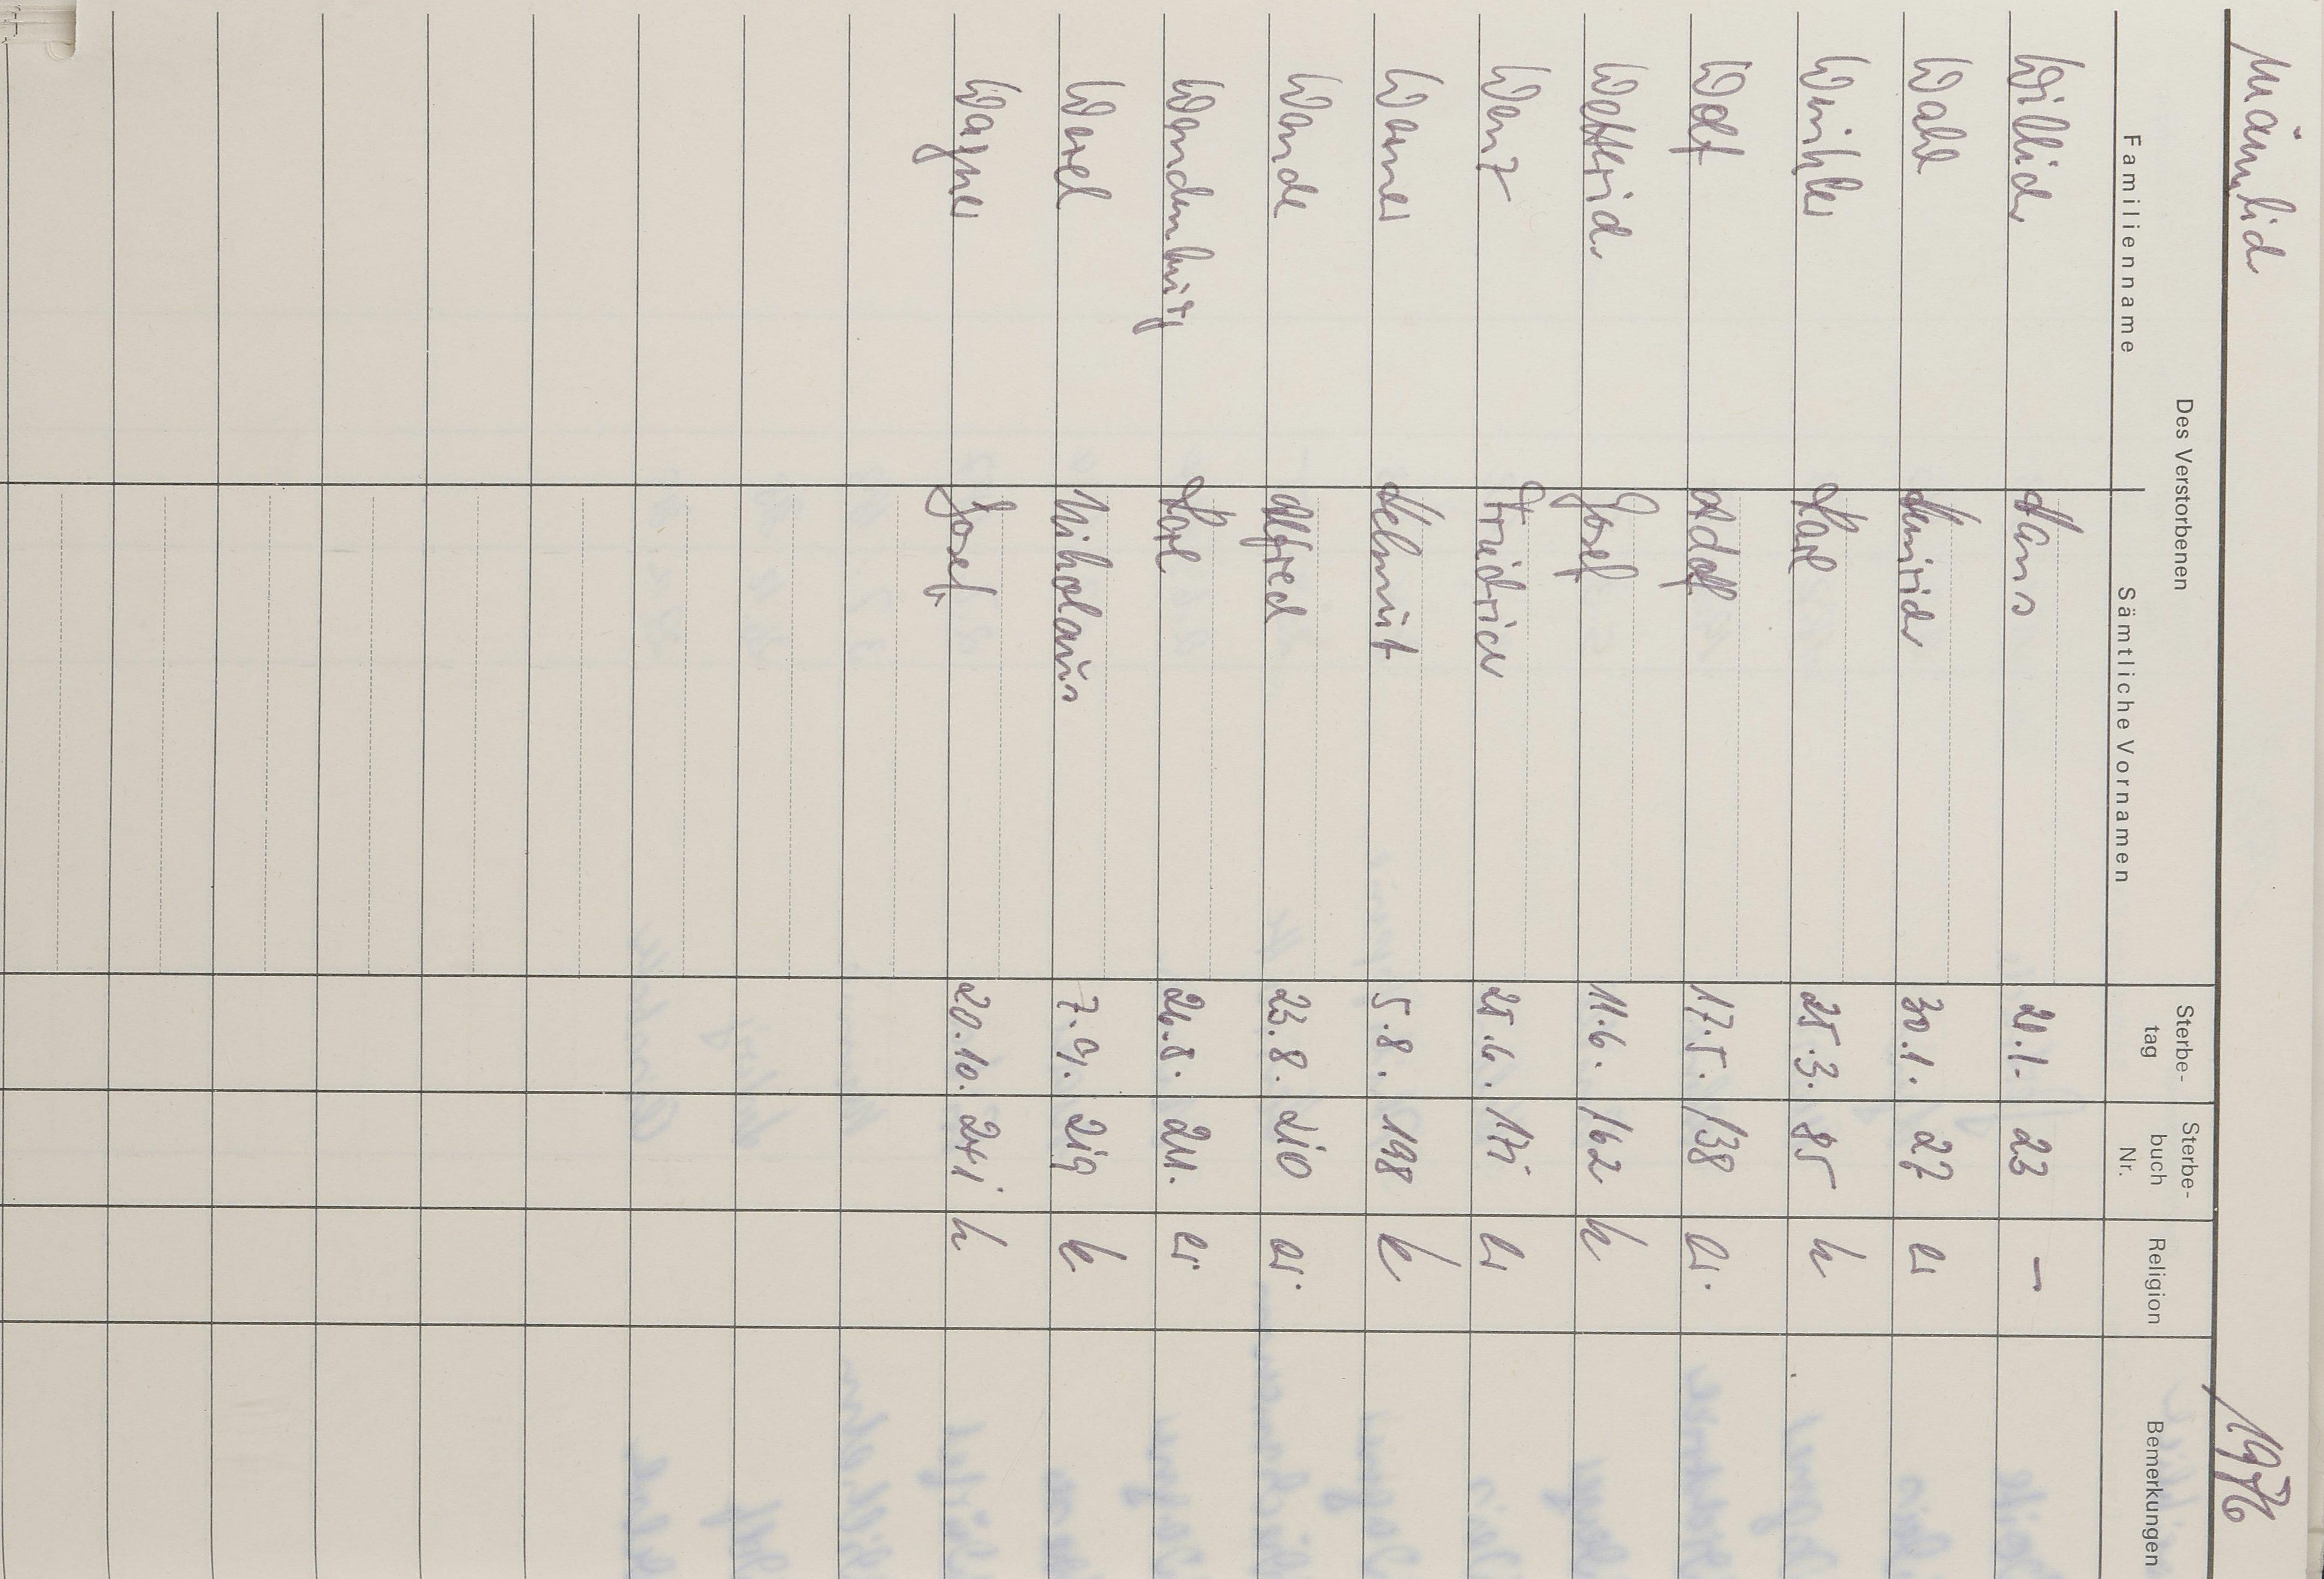 Männlich 1976
Des Verstorbenen
Familienname Sämtliche Vornamen Sterbe-tag Sterbe-buch Nr. Religion Bemerkungen
Willich Hans 21.1. 23 –
Wahl Heinrich 30.1. 27 ev
Winkler Karl 25.3. 85 k
Wolf Adolf 17.5. 138 ev.
Wettrich Josef 11.6. 162 k
Wenz Friedrich 25.6. ev
Werner Helmut 5.8. 198 k
Wende Alfred 23.8. 210 ev.
Karl 24.8. 211. ev.
Nikolaus 7.9. 219 k
Wagner Josef. 20.10. 241 k